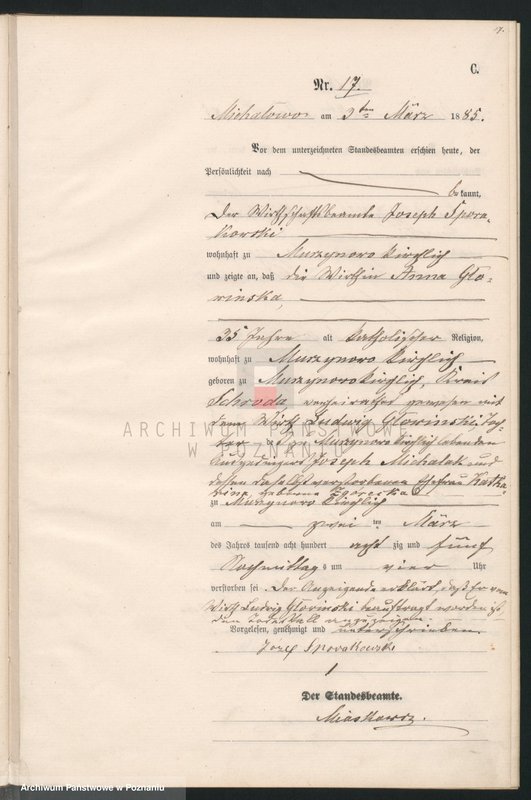 17.
C.
Nr. 17.
Michalowo am 3ten März 1885.
Vor dem unterzeichneten Standesbeamten erschien heute, der
Persönlichkeit nach
bekannt,
der Wirthschaftsbeamte Joseph Spora-
kowski
wohnhaft zu Murzynowo kirchlich
und zeigte an, daß die Wirthin Anna Glo-
winska,
35 Jahre alt katholischer Religion,
wohnhaft zu Murzynowo kirchlich
geboren zu Murzynowo kirchlich, Kreis
Schroda, verheirathet gewesen mit
dem Wirth Ludwig Glowinski, Toch-
ter des zu Murzynowo kirchlich lebenden
Ausgedingers Joseph Michalak und
dessen daselbst verstorbenen Ehefrau Katha-
rina, geborene
zu Murzynowo kirchlich
am zwei ten März
des Jahres tausend acht hundert acht zig und fünf
Nachmittags um vier Uhr
verstorben sei. Der Anzeigende erklärt, daß Er vom
Wirth Ludwig Glowinski beauftragt worden ist
den Todesfall anzuzeigen.
Vorgelesen, genehmigt und unterschrieben.
Jozef Sporakowski
Der Standesbeamte.
Miaskowicz.
ARCHIWUM PAŃSTWOWE
W POZNANIU
Archiwum Państwowe w Poznaniu
Archiwum Państwowe w Poznaniu